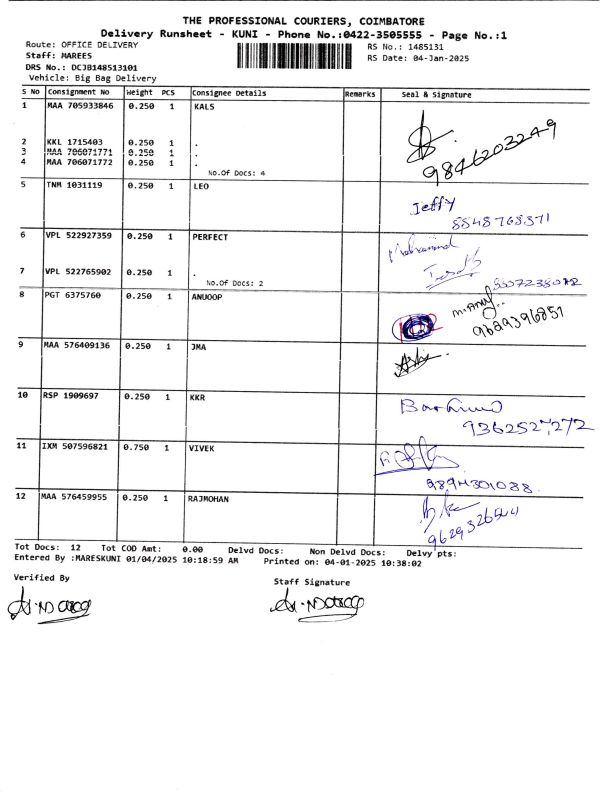 THE PROFESSIONAL COURIERS, COIMBATORE
Delivery Runsheet - KUNI - Phone No.:0422-3505555 - Page No.:1
Route: OFFICE DELIVERY
RS No.: 1485131
Staff: MAREES
RS Date: 04-Jan-2025
DRS No.: DCJB148513101
Vehicle: Big Bag Delivery
S No Consignment No Weight PCS Consignee Details Remarks Seal & Signature
1 MAA 705933846 0.250 1 KALS
2 KKL 1715403 0.250 1 .
3 MAA 706071771 0.250 1 .
4 MAA 706071772 0.250 1 .
No.Of Docs: 4
9846203249
5 TNM 1031119 0.250 1 LEO
Jeffy
8848768371
6 VPL 522927359 0.250 1 PERFECT
Mohammed
7 VPL 522765902 0.250 1 .
No.Of Docs: 2
8 PGT 6375760 0.250 1 ANUOOP
9689396851
9 MAA 576409136 0.250 1 JMA
10 RSP 1909697 0.250 1 KKR
9362527272
11 IXM 507596821 0.750 1 VIVEK
9894301088
12 MAA 576459955 0.250 1 RAJMOHAN
9629326504
Tot Docs: 12 Tot COD Amt: 0.00 Delvd Docs: Non Delvd Docs: Delvy pts:
Entered By :MARESKUNI 01/04/2025 10:18:59 AM Printed on: 04-01-2025 10:38:02
Verified By
Staff Signature